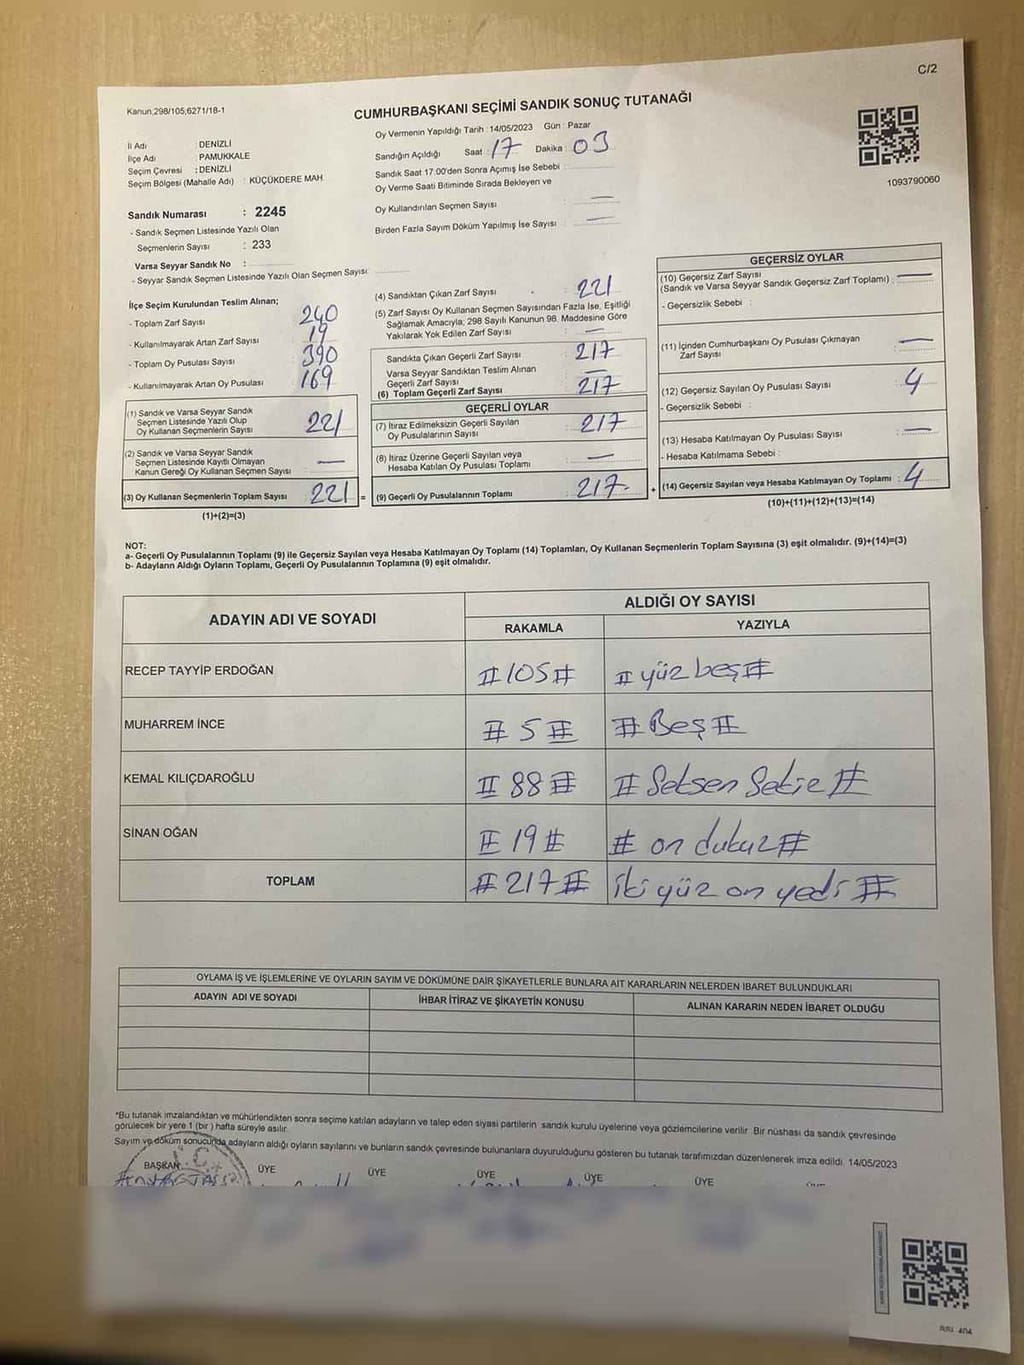 C/2
Kanun,298/105;6271/18-1
CUMHURBAŞKANI SEÇİMİ SANDIK SONUÇ TUTANAĞI
İl Adı DENİZLİ
İlçe Adı PAMUKKALE
Seçim Çevresi : DENİZLİ
Seçim Bölgesi (Mahalle Adı) : KÜÇÜKDERE MAH.
Sandık Numarası : 2245
- Sandık Seçmen Listesinde Yazılı Olan
Seçmenlerin Sayısı : 233
Varsa Seyyar Sandık No :
- Seyyar Sandık Seçmen Listesinde Yazılı Olan Seçmen Sayısı
Oy Vermenin Yapıldığı Tarih : 14/05/2023 Gün : Pazar
Sandığın Açıldığı Saat : 17 Dakika : 03
Sandık Saat 17:00'den Sonra Açımış İse Sebebi
Oy Verme Saati Bitiminde Sırada Bekleyen ve
Oy Kullandırılan Seçmen Sayısı —
Birden Fazla Sayım Döküm Yapılmış İse Sayısı : —
1093790060
İlçe Seçim Kurulundan Teslim Alınan;
- Toplam Zarf Sayısı 240
- Kullanılmayarak Artan Zarf Sayısı : 19
- Toplam Oy Pusulası Sayısı : 390
- Kullanılmayarak Artan Oy Pusulası : 169
(1) Sandık ve Varsa Seyyar Sandık
Seçmen Listesinde Yazılı Olup
Oy Kullanan Seçmenlerin Sayısı 221
(2) Sandık ve Varsa Seyyar Sandık
Seçmen Listesinde Kayıtlı Olmayan
Kanun Gereği Oy Kullanan Seçmen Sayısı —
(3) Oy Kullanan Seçmenlerin Toplam Sayısı 221 =
(1)+(2)=(3)
(4) Sandıktan Çıkan Zarf Sayısı : 221
(5) Zarf Sayısı Oy Kullanan Seçmen Sayısından Fazla İse, Eşitliği
Sağlamak Amacıyla, 298 Sayılı Kanunun 98. Maddesine Göre
Yakılarak Yok Edilen Zarf Sayısı : —
Sandıkta Çıkan Geçerli Zarf Sayısı : 217
Varsa Seyyar Sandıktan Teslim Alınan
Geçerli Zarf Sayısı : —
(6) Toplam Geçerli Zarf Sayısı : 217
GEÇERLİ OYLAR
(7) İtiraz Edilmeksizin Geçerli Sayılan
Oy Pusulalarının Sayısı : 217
(8) İtiraz Üzerine Geçerli Sayılan veya
Hesaba Katılan Oy Pusulası Toplamı : —
(9) Geçerli Oy Pusulalarının Toplamı : 217 +
GEÇERSİZ OYLAR
(10) Geçersiz Zarf Sayısı
(Sandık ve Varsa Seyyar Sandık Geçersiz Zarf Toplamı) : —
- Geçersizlik Sebebi :
(11) İçinden Cumhurbaşkanı Oy Pusulası Çıkmayan
Zarf Sayısı : —
(12) Geçersiz Sayılan Oy Pusulası Sayısı : 4
- Geçersizlik Sebebi :
(13) Hesaba Katılmayan Oy Pusulası Sayısı : —
- Hesaba Katılmama Sebebi :
(14) Geçersiz Sayılan veya Hesaba Katılmayan Oy Toplamı : 4
(10)+(11)+(12)+(13)=(14)
NOT:
a- Geçerli Oy Pusulalarının Toplamı (9) ile Geçersiz Sayılan veya Hesaba Katılmayan Oy Toplamı (14) Toplamları, Oy Kullanan Seçmenlerin Toplam Sayısına (3) eşit olmalıdır. (9)+(14)=(3)
b- Adayların Aldığı Oyların Toplamı, Geçerli Oy Pusulalarının Toplamına (9) eşit olmalıdır.
ADAYIN ADI VE SOYADI ALDIĞI OY SAYISI
RAKAMLA YAZIYLA
RECEP TAYYİP ERDOĞAN #105# # yüz beş #
MUHARREM İNCE # 5 # # Beş #
KEMAL KILIÇDAROĞLU # 88 # # Seksen Sekiz #
SİNAN OĞAN # 19 # # on dokuz #
TOPLAM # 217 # iki yüz on yedi #
OYLAMA İŞ VE İŞLEMLERİNE VE OYLARIN SAYIM VE DÖKÜMÜNE DAİR ŞİKAYETLERLE BUNLARA AİT KARARLARIN NELERDEN İBARET BULUNDUKLARI
ADAYIN ADI VE SOYADI İHBAR İTİRAZ VE ŞİKAYETİN KONUSU ALINAN KARARIN NEDEN İBARET OLDUĞU
*Bu tutanak imzalandıktan ve mühürlendikten sonra seçime katılan adayların ve talep eden siyasi partilerin sandık kurulu üyelerine veya gözlemcilerine verilir. Bir nüshası da sandık çevresinde
görülecek bir yere 1 (bir) hafta süreyle asılır.
Sayım ve döküm sonucunda adayların aldığı oyların sayılarını ve bunların sandık çevresinde bulunanlara duyurulduğunu gösteren bu tutanak tarafımızdan düzenlenerek imza edildi. 14/05/2023
BAŞKAN ÜYE ÜYE ÜYE ÜYE ÜYE
T.C.